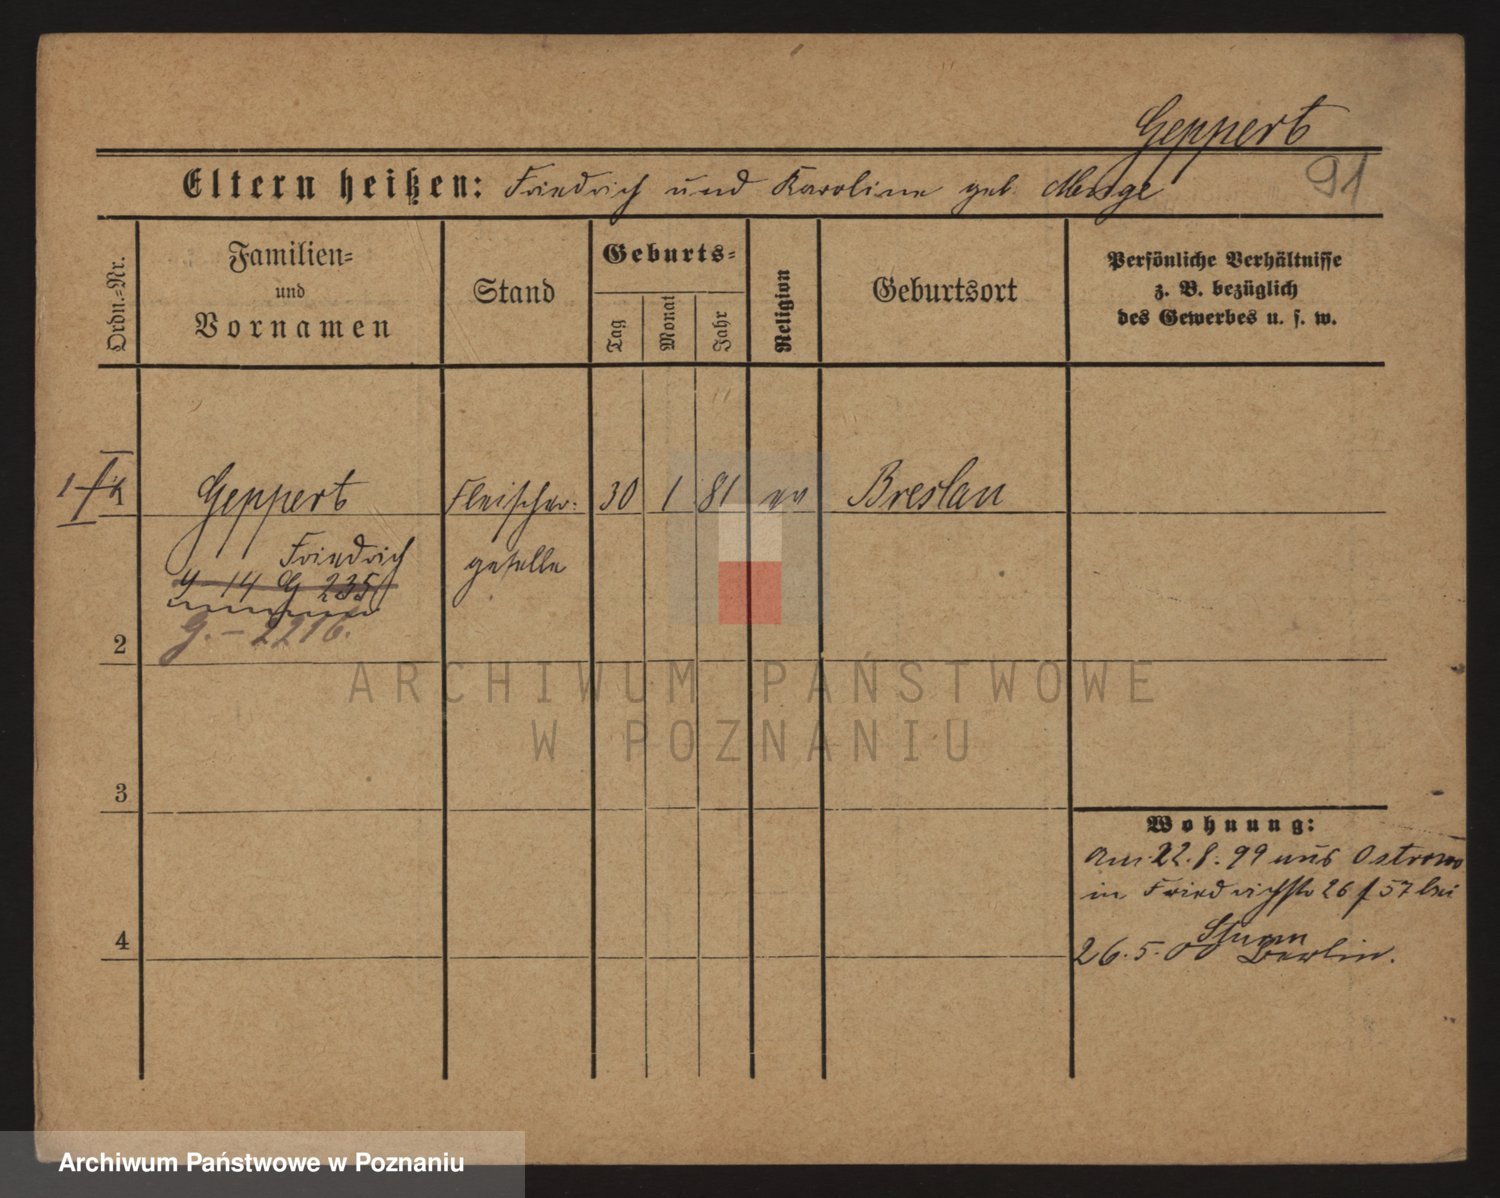 Geppert
91
Eltern heißen: Friedrich und Karoline geb. Menge
Ordn.-Nr.
Familien-
und
Vornamen
Stand
Geburts-
Tag
Monat
Jahr
Religion
Geburtsort
Persönliche Verhältnisse
z. B. bezüglich
des Gewerbes u. s. w.
1 Geppert Fleischer- 30 1 81 ev Breslau
Friedrich geselle
14 G 235
G. - 2216.
2
3
4
Wohnung:
Am 22.8.99 aus Ostrowo
in Friedrichstr 26 f 57 bei
Sturm
26.5.00 Berlin.
ARCHIWUM PAŃSTWOWE
W POZNANIU
Archiwum Państwowe w Poznaniu